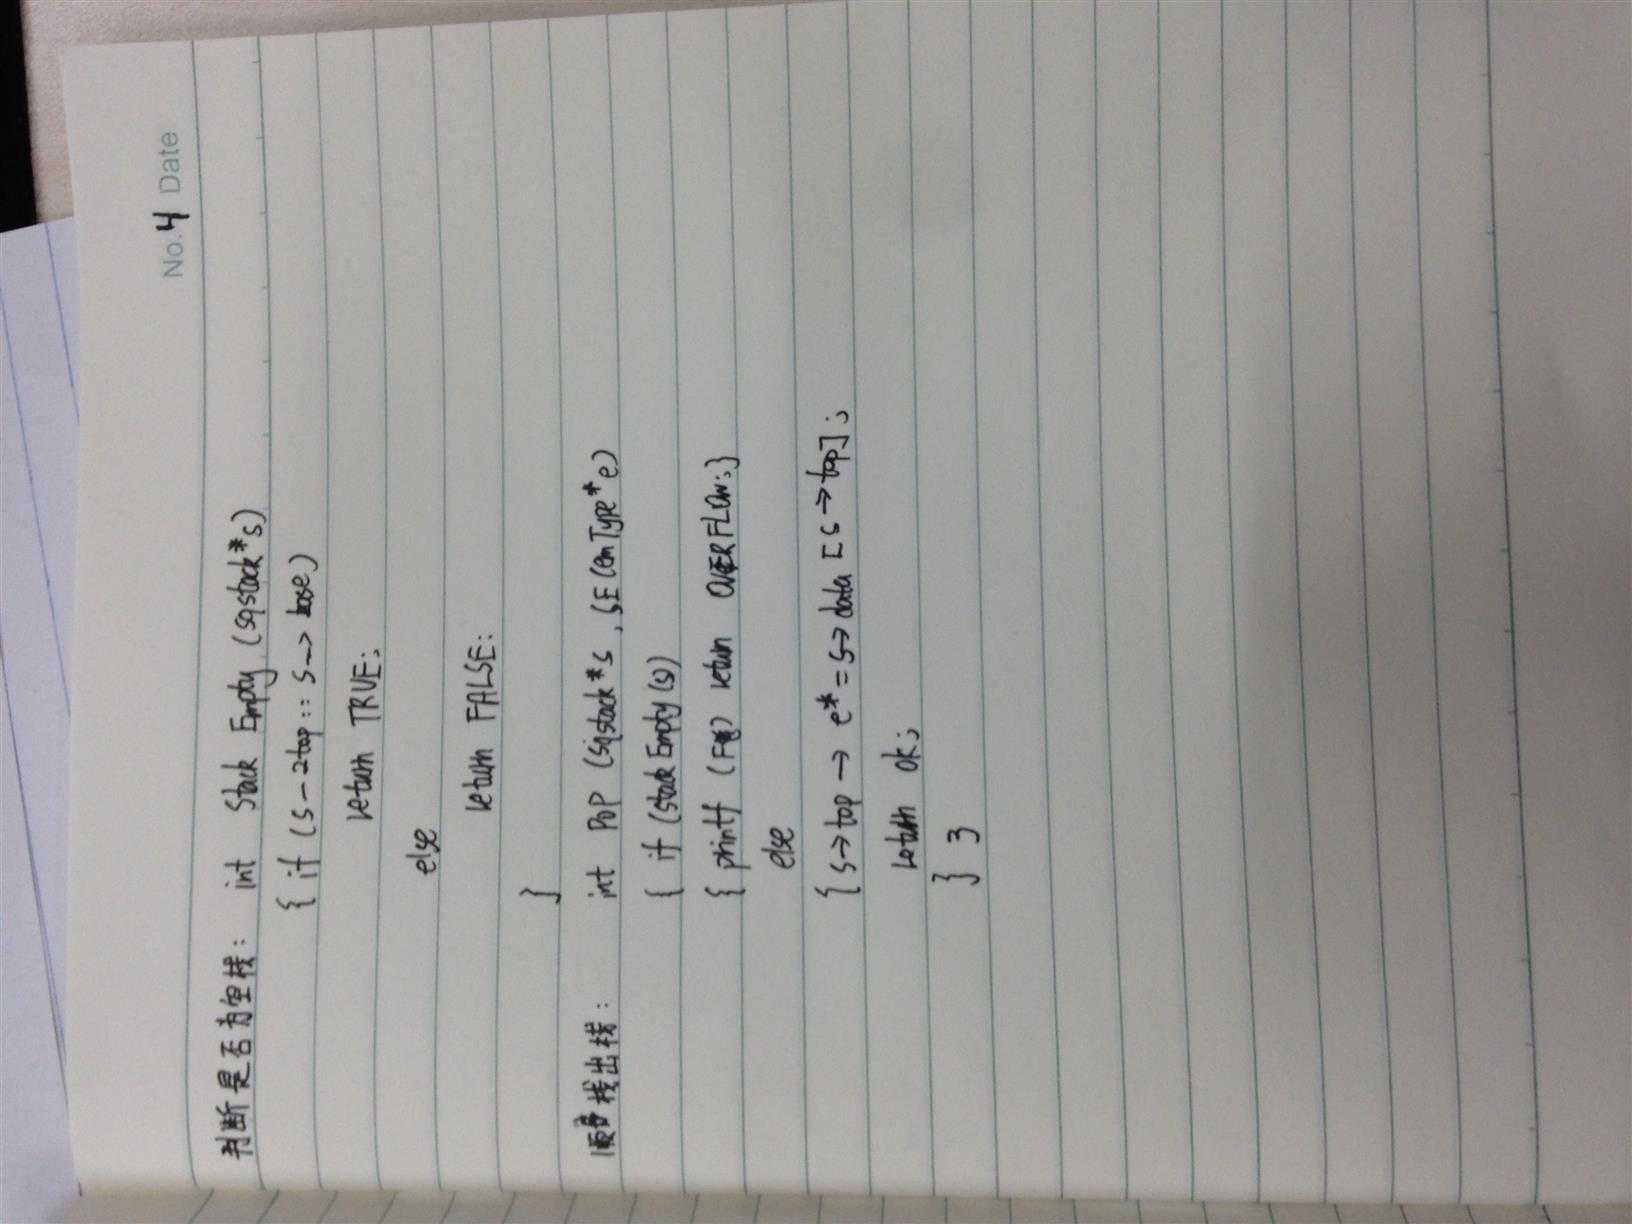 No. 4 Date
判断是否为空栈: int Stack Empty (sqstack*s)
{ if (s-2top :: s-> base)
return TRUE;
else
return FALSE:
}
顺序栈出栈: int POP (sqstack*s, SElemType*e)
{ if (stack Empty (s))
{ printf ( ) return OVERFLOW;}
else
{ s->top -> e* = s->data [s->top];
return ok;
} }